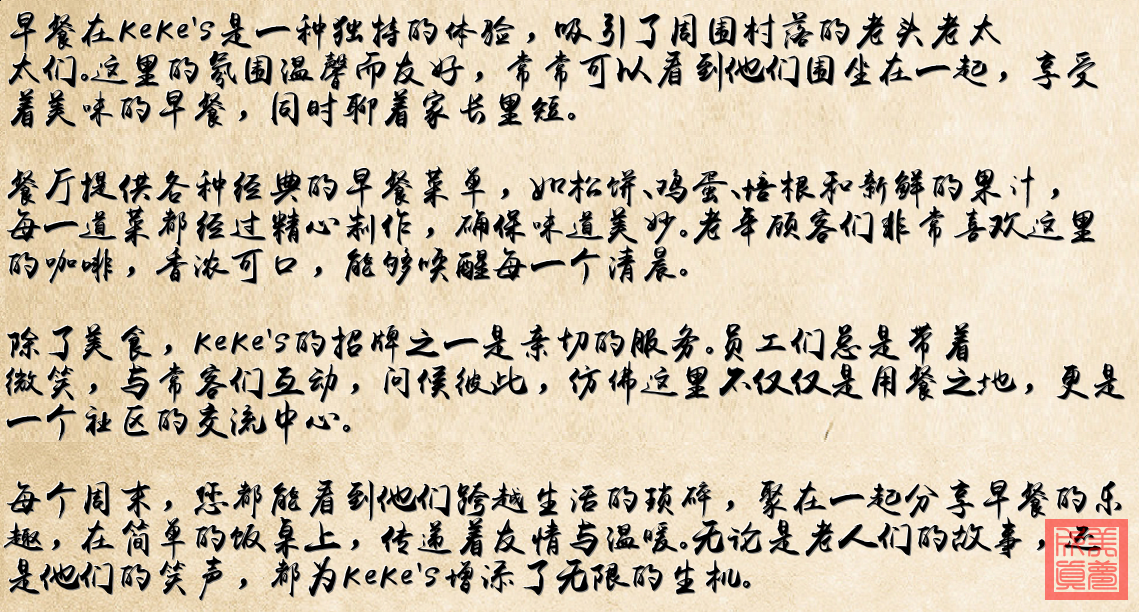 早餐在KeKe's是一种独特的体验，吸引了周围村落的老头老太
太们。这里的氛围温馨而友好，常常可以看到他们围坐在一起，享受
着美味的早餐，同时聊着家长里短。
餐厅提供各种经典的早餐菜单，如松饼、鸡蛋、培根和新鲜的果汁，
每一道菜都经过精心制作，确保味道美妙。老年顾客们非常喜欢这里
的咖啡，香浓可口，能够唤醒每一个清晨。
除了美食，KeKe's的招牌之一是亲切的服务。员工们总是带着
微笑，与常客们互动，问候彼此，仿佛这里不仅仅是用餐之地，更是
一个社区的交流中心。
每个周末，您都能看到他们跨越生活的琐碎，聚在一起分享早餐的乐
趣，在简单的饭桌上，传递着友情与温暖。无论是老人们的故事，还
是他们的笑声，都为KeKe's增添了无限的生机。